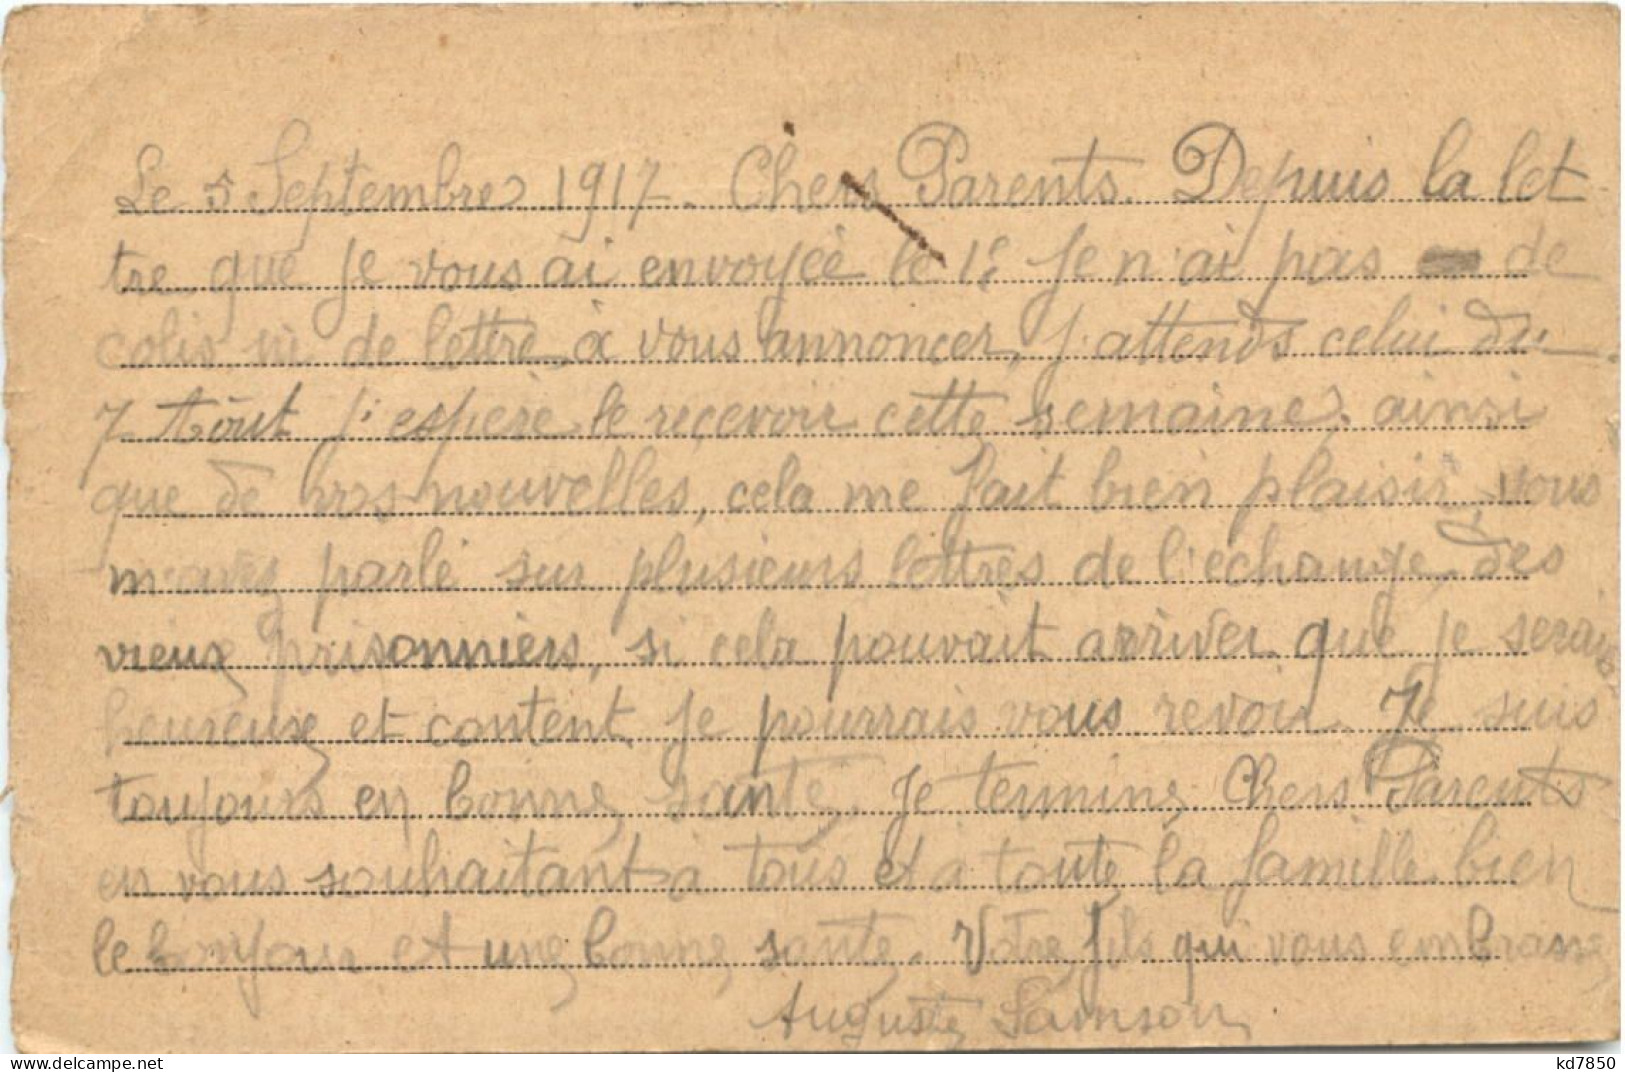 Le 5 Septembre 1917. Chers Parents. Depuis la let
tre que je vous ai envoyée le 1er je n'ai pas de
colis ni de lettre à vous annoncer, j'attends celui du
7 Aôut j'espère le reçevoir cette semaine, ainsi
que de vos nouvelles, cela me fait bien plaisir, vous
m'avez parlé sur plusieurs lettres de l'échange des
vieux prisonniers, si cela pouvait arriver que je serais
heureux et content je pourrais vous revoir. Je suis
toujours en bonne santé. Je termine Chers Parents
en vous souhaitant à tous et à toute la famille bien
le bonjour et une bonne santé. Votre fils qui vous embrasse
Auguste Samson
kd7850